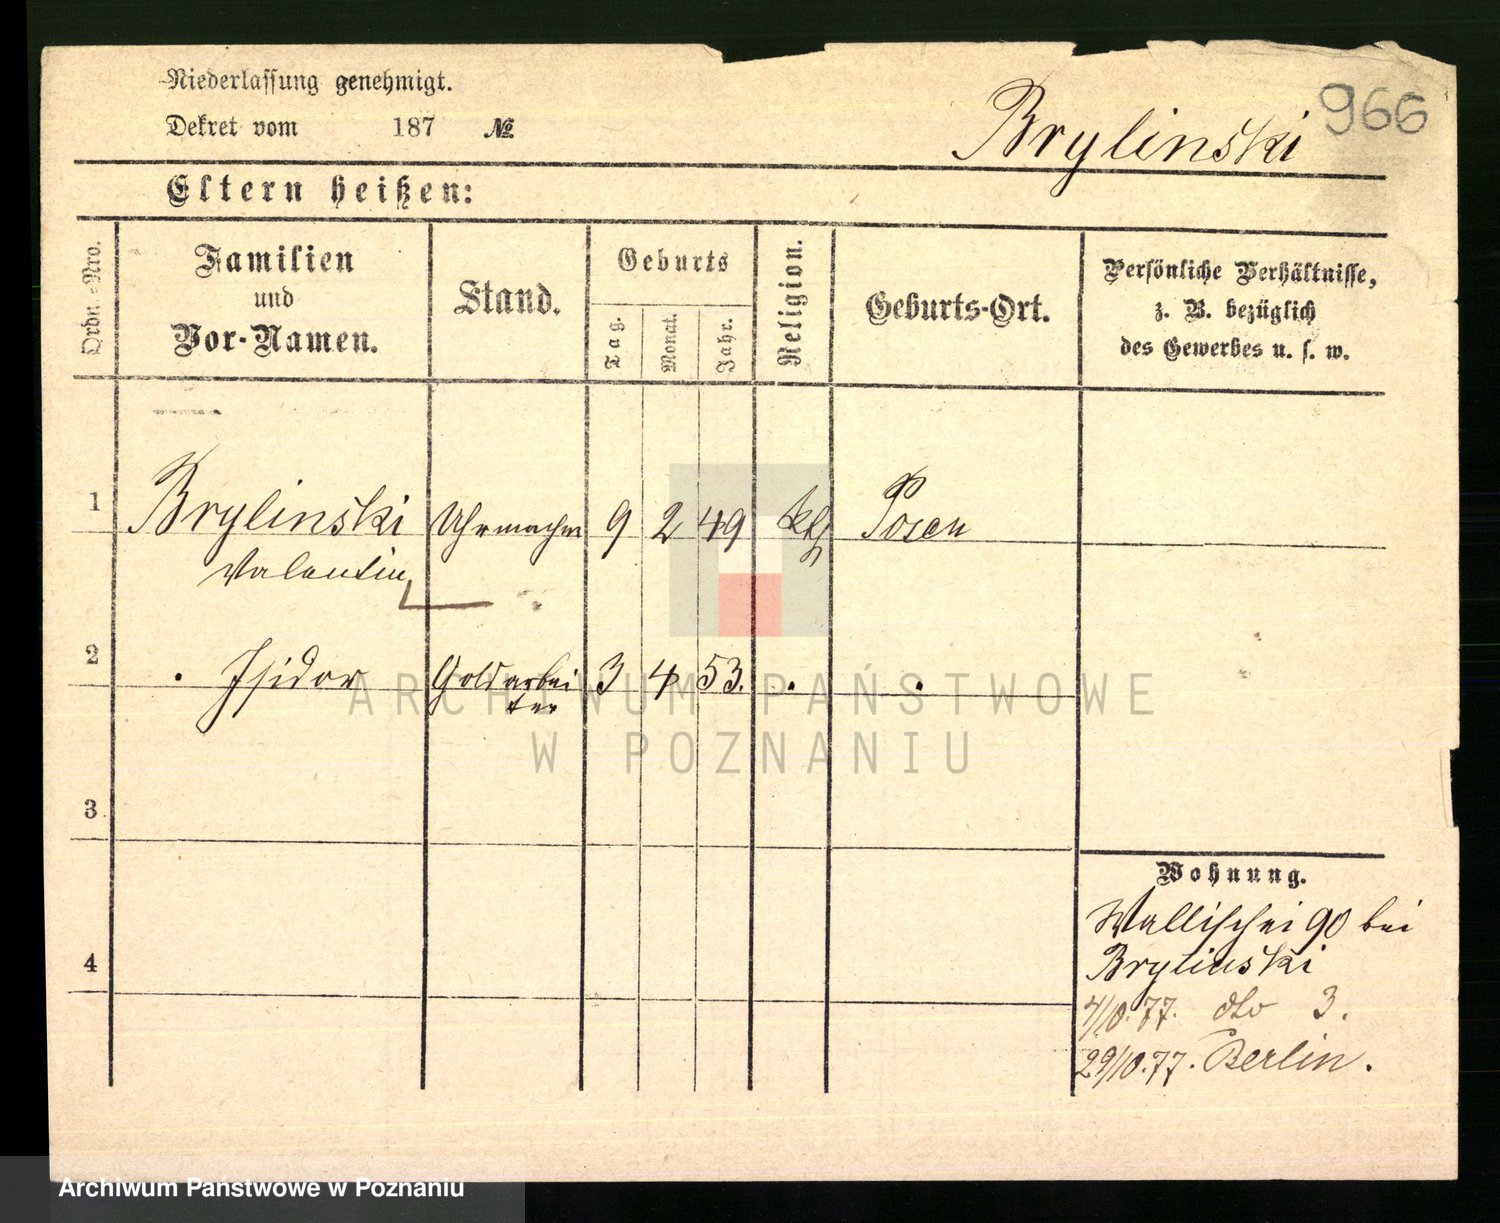 Niederlassung genehmigt.
Dekret vom 187 №
Brylinski 966
Eltern heißen:
Ordn.-Nro.
Familien
und
Vor-Namen.
Stand.
Geburts
Tag.
Monat.
Jahr.
Religion.
Geburts-Ort.
Persönliche Verhältnisse,
z. B. bezüglich
des Gewerbes u. s. w.
1 Brylinski Uhrmacher 9 2 49 kth Posen
Valentin
2 . Isidor Goldarbei 3 4 53. . .
ter
3
4
Wohnung.
Wallischei 90 bei
Brylinski
4/10.77. dto 3.
29/10.77. Berlin.
ARCHIWUM PAŃSTWOWE
W POZNANIU
Archiwum Państwowe w Poznaniu